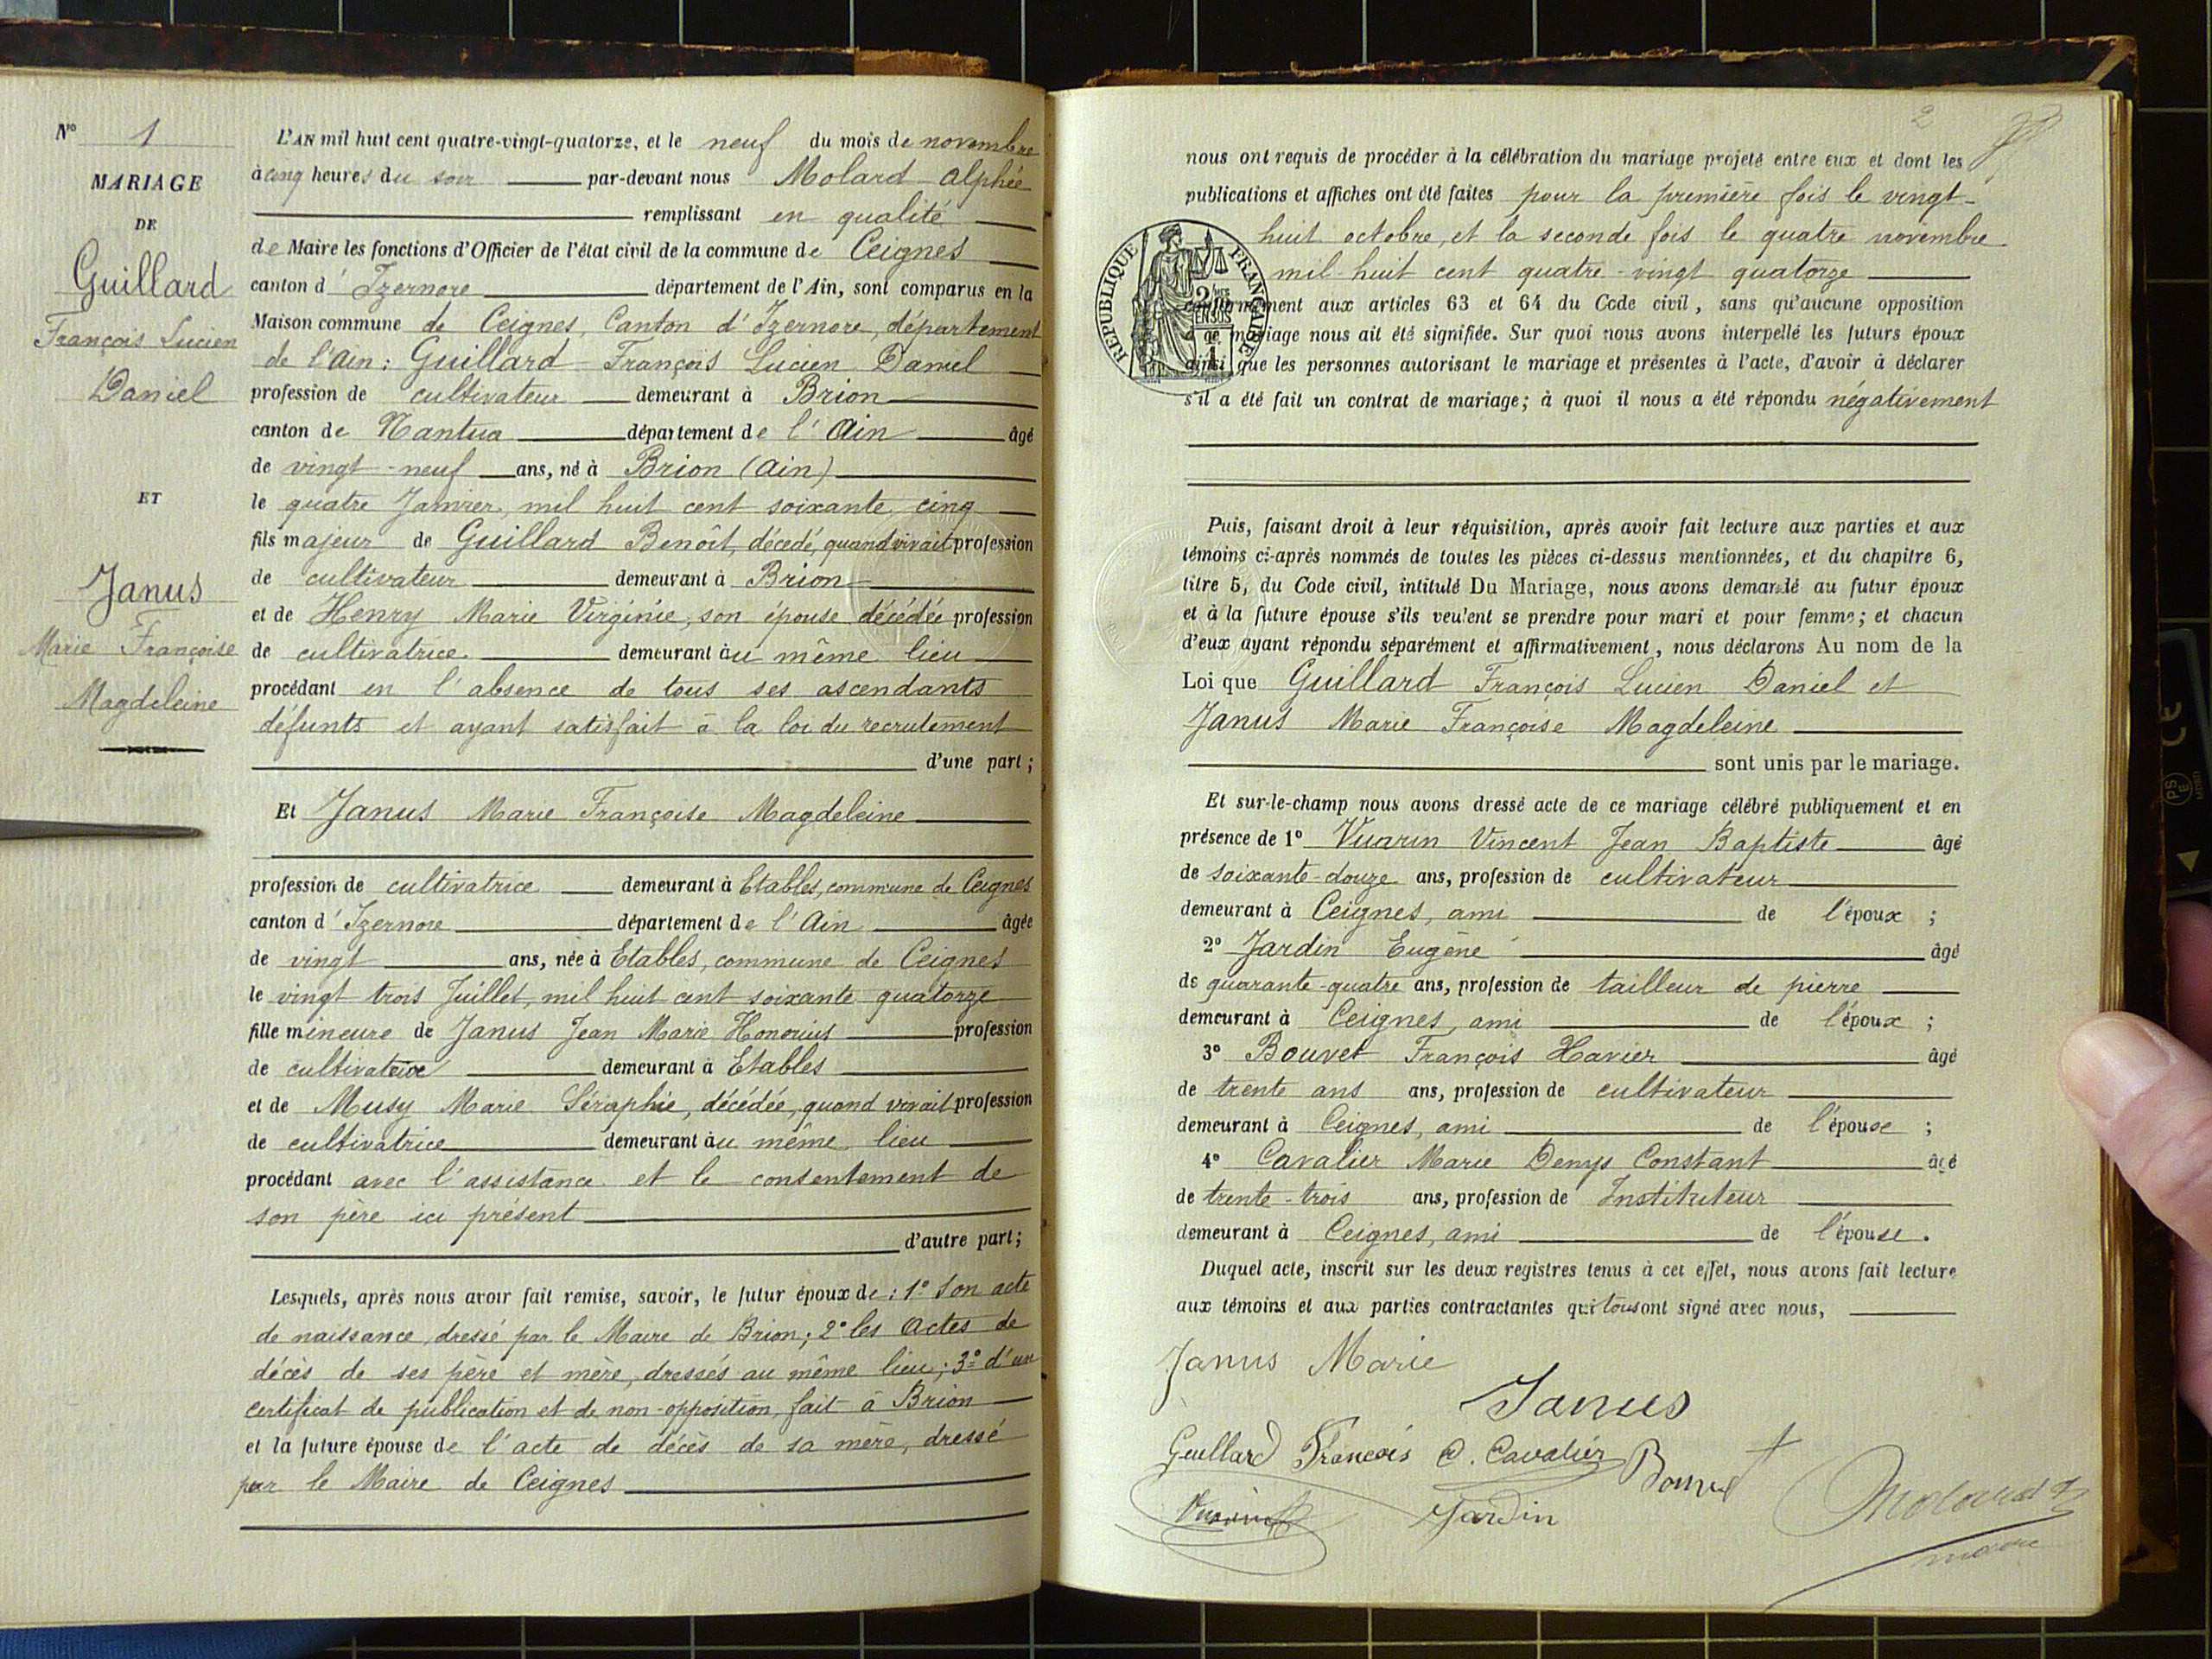 N° 1
MARIAGE
DE
Guillard
François Lucien
Daniel
ET
Janus
Marie Françoise
Magdeleine
L'AN mil huit cent quatre-vingt-quatorze, et le neuf du mois de novembre
à cinq heures du soir par-devant nous Molard Alphée
remplissant en qualité
de Maire les fonctions d'Officier de l'état civil de la commune de Ceignes
canton d' Izernore département de l'Ain, sont comparus en la
Maison commune de Ceignes, Canton d'Izernore, département
de l'Ain : Guillard François Lucien Daniel
profession de cultivateur demeurant à Brion
canton de Nantua département de l'Ain âgé
de vingt-neuf ans, né à Brion (Ain)
le quatre Janvier, mil huit cent soixante cinq
fils majeur de Guillard Benoît, décedé, quand vivait profession
de cultivateur demeurant à Brion
et de Henry Marie Virginie, son épouse décédée profession
de cultivatrice demeurant au même lieu
procédant en l'absence de tous ses ascendants
défunts et ayant satisfait à la loi du recrutement
d'une part ;
Et Janus Marie Françoise Magdeleine
profession de cultivatrice demeurant à Etables, commune de Ceignes
canton d' Izernore département de l'Ain âgée
de vingt ans, née à Etables, commune de Ceignes
le vingt trois Juillet, mil huit cent soixante quatorze
fille mineure de Janus Jean Marie Honorius profession
de demeurant à Etables
et de Musy Marie Séraphie, décédée, quand vivait profession
de cultivatrice demeurant au même lieu
procédant avec l'assistance et le consentement de
son père ici présent
d'autre part ;
Lesquels, après nous avoir fait remise, savoir, le futur époux de : 1° Son acte
de naissance, dressé par le Maire de Brion ; 2° les Actes de
décès de ses père et mère, dressés au même lieu ; 3° d'un
certificat de publication et de non-opposition, fait à Brion
et la future épouse de l'acte de décès de sa mère, dressé
par le Maire de Ceignes
2
nous ont requis de procéder à la célébration du mariage projeté entre eux et dont les
publications et affiches ont été faites pour la première fois le vingt-
huit octobre, et la seconde fois le quatre novembre
mil huit cent quatre-vingt quatorze
RÉPUBLIQUE FRANÇAISE
conformément aux articles 63 et 64 du Code civil, sans qu'aucune opposition
à ce mariage nous ait été signifiée. Sur quoi nous avons interpellé les futurs époux
ainsi que les personnes autorisant le mariage et présentes à l'acte, d'avoir à déclarer
s'il a été fait un contrat de mariage ; à quoi il nous a été répondu négativement
Puis, faisant droit à leur réquisition, après avoir fait lecture aux parties et aux
témoins ci-après nommés de toutes les pièces ci-dessus mentionnées, et du chapitre 6,
titre 5, du Code civil, intitulé Du Mariage, nous avons demandé au futur époux
et à la future épouse s'ils veulent se prendre pour mari et pour femme ; et chacun
d'eux ayant répondu séparément et affirmativement, nous déclarons Au nom de la
Loi que Guillard François Lucien Daniel et
Janus Marie Françoise Magdeleine
sont unis par le mariage.
Et sur-le-champ nous avons dressé acte de ce mariage célébré publiquement et en
présence de 1° Vuarin Vincent Jean Baptiste âgé
de soixante-douze ans, profession de cultivateur
demeurant à Ceignes, ami de l'époux ;
2° Jardin Eugène âgé
de quarante-quatre ans, profession de tailleur de pierre
demeurant à Ceignes, ami de l'époux ;
3° Bouvet François Xavier âgé
de trente ans ans, profession de cultivateur
demeurant à Ceignes, ami de l'épouse ;
4° Cavalier Marie Denys Constant âgé
de trente-trois ans, profession de Instituteur
demeurant à Ceignes, ami de l'épouse.
Duquel acte, inscrit sur les deux registres tenus à cet effet, nous avons fait lecture
aux témoins et aux parties contractantes qui tous ont signé avec nous,
Janus Marie
Janus
Guillard François C. Cavalier Bouvet
Vuarin Jardin Molard
maire